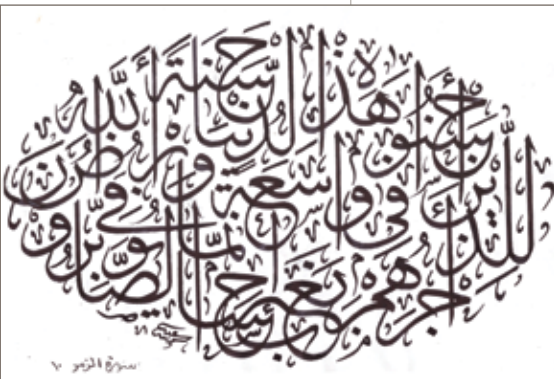 للذين أحسنوا في هذه الدنيا حسنة وأرض الله واسعة إنما يوفى الصابرون أجرهم بغير حساب
سورة الزمر ١٠